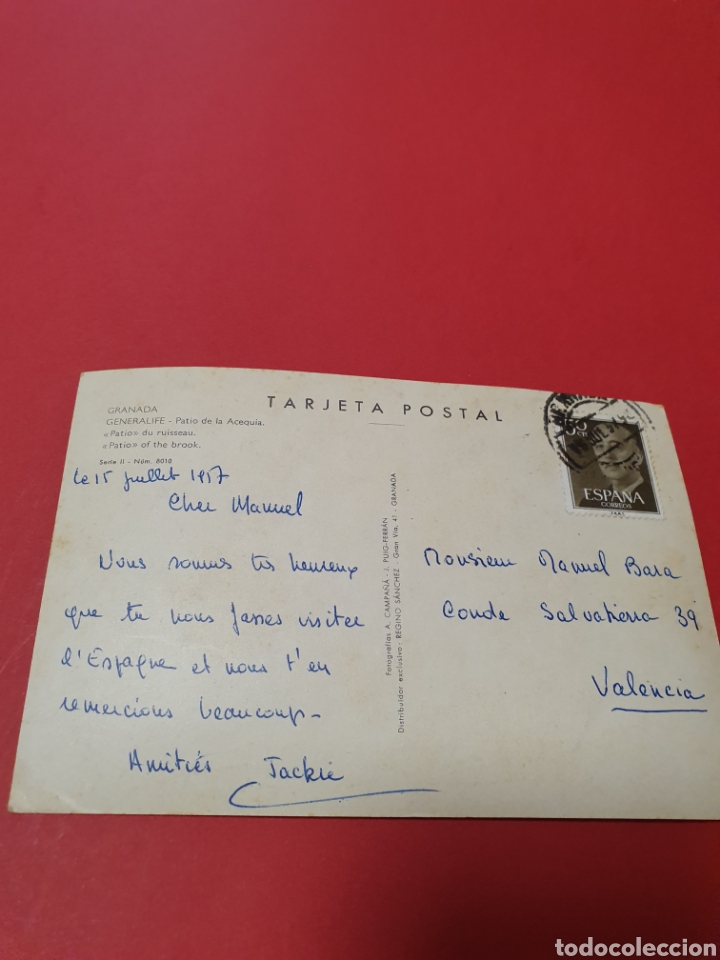 TARJETA POSTAL
GRANADA
GENERALIFE - Patio de la Acequia.
«Patio» du ruisseau.
«Patio» of the brook.
Serie II - Núm. 8018
le 15 juillet 1957
Cher Manuel
Nous sommes tes heureux
que tu nous fasses visiter
l'Espagne et nous t'en
remercions beaucoup-
Amitiés Jackie
Fotografías A. CAMPAÑÁ - J. PUIG-FERRÁN
Distribuidor exclusivo: REGINO SÁNCHEZ - Gran Vía, 41 - GRANADA
ESPAÑA
CORREOS
Monsieur Manuel Bara
Conde Salvatierra 39
Valencia
todocoleccion